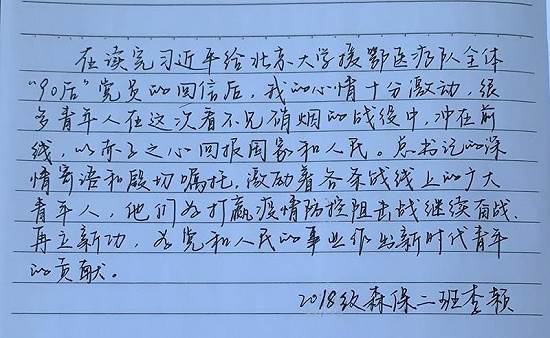 在读完习近平给北京大学援鄂医疗队全体
“90后”党员的回信后，我的心情十分激动，很
多青年人在这次看不见硝烟的战役中，冲在前
线，以赤子之心回报国家和人民。总书记的深
情寄语和殷切嘱托，激励着各条战线上的广大
青年人，他们为打赢疫情防控阻击战继续奋战、
再立新功，为党和人民的事业作出新时代青年
的贡献。
2018级森保二班李颖